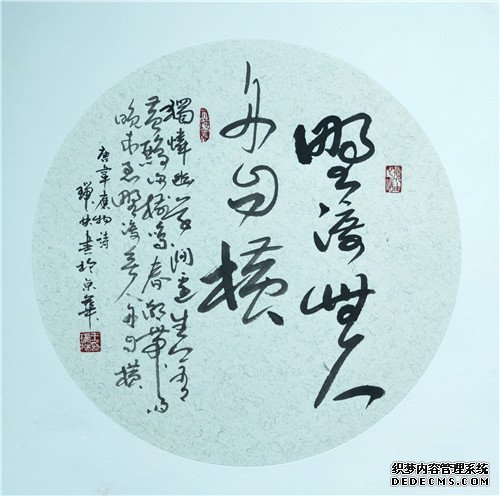 野渡無人
舟自横
獨憐幽草澗邊生上有
黄鸝深樹鳴春潮帶雨
晚來急野渡無人舟自横
唐韋應物詩
書於京華
织梦内容管理系统
DEDECMS.COM